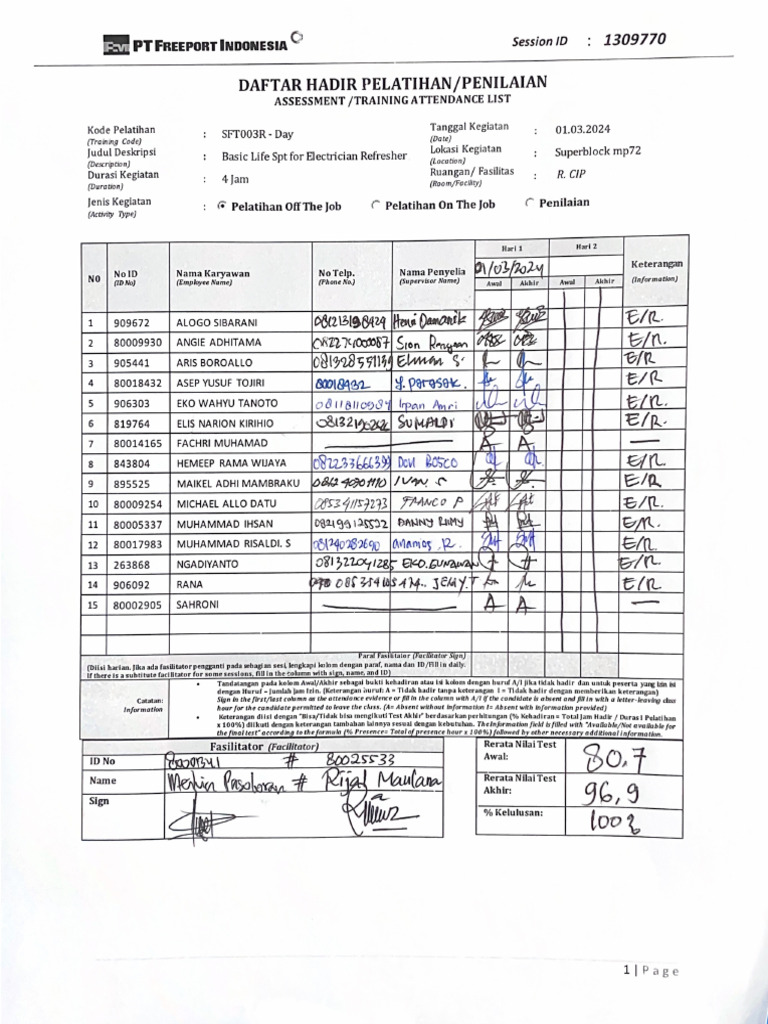 PT FREEPORT INDONESIA
Session ID : 1309770
DAFTAR HADIR PELATIHAN/PENILAIAN
ASSESSMENT /TRAINING ATTENDANCE LIST
Kode Pelatihan (Training Code) : SFT003R - Day
Tanggal Kegiatan (Date) : 01.03.2024
Judul Deskripsi (Description) : Basic Life Spt for Electrician Refresher
Lokasi Kegiatan (Location) : Superblock mp72
Durasi Kegiatan (Duration) : 4 Jam
Ruangan/ Fasilitas (Room/Facility) : R. CIP
Jenis Kegiatan (Activity Type) : Pelatihan Off The Job Pelatihan On The Job Penilaian
NO No ID (ID No) Nama Karyawan (Employee Name) No Telp. (Phone No.) Nama Penyelia (Supervisor Name) Hari 1 Hari 2 Keterangan (Information)
01/03/2024
Awal Akhir Awal Akhir
1 909672 ALOGO SIBARANI E/R.
2 80009930 ANGIE ADHITAMA E/R.
3 905441 ARIS BOROALLO Elman S. E/R
4 80018432 ASEP YUSUF TOJIRI 80018432 Y. Parasak. E/R
5 906303 EKO WAHYU TANOTO Irpan Amri E/R.
6 819764 ELIS NARION KIRIHIO SUMALDI E/R.
7 80014165 FACHRI MUHAMAD A A
8 843804 HEMEEP RAMA WIJAYA 082233666399 Dovi BOSCO E/R.
9 895525 MAIKEL ADHI MAMBRAKU IVAN S E/R.
10 80009254 MICHAEL ALLO DATU 085341157273 FRANCO P E/R.
11 80005337 MUHAMMAD IHSAN 082199125522 DANNY RUMY E/R.
12 80017983 MUHAMMAD RISALDI. S 081240282690 E/R.
13 263868 NGADIYANTO 081322041285 EKO.GUNAWAN E/R.
14 906092 RANA JERRY.T E/R
15 80002905 SAHRONI A A
Paraf Fasilitator (Facilitator Sign)
(Diisi harian. Jika ada fasilitator pengganti pada sebagian sesi, lengkapi kolom dengan paraf, nama dan ID/Fill in daily.
If there is a substitute facilitator for some sessions, fill in the column with sign, name, and ID)
Catatan: Information
• Tandatangan pada kolom Awal/Akhir sebagai bukti kehadiran atau isi kolom dengan huruf A/I jika tidak hadir dan untuk peserta yang izin isi
dengan Huruf = Jumlah jam izin. (Keterangan huruf: A = Tidak hadir tanpa keterangan I = Tidak hadir dengan memberikan keterangan)
Sign in the first/last column as the attendance evidence or fill in the column with A/I if the candidate is absent and fill in with a letter-leaving class
hour for the candidate permitted to leave the class. (A= Absent without information I= Absent with information provided)
• Keterangan diisi dengan "Bisa/Tidak bisa mengikuti Test Akhir" berdasarkan perhitungan (% Kehadiran = Total Jam Hadir / Durasi Pelatihan
x 100%) diikuti dengan keterangan tambahan lainnya sesuai dengan kebutuhan. The Information field is filled with "Available/Not available for
the final test" according to the formula (% Presence= Total of presence hour x 100%) followed by other necessary additional information.
Fasilitator (Facilitator)
ID No # 80025533
Name # Rijal Maulana
Sign
Rerata Nilai Test Awal: 80,7
Rerata Nilai Test Akhir: 96,9
% Kelulusan: 100%
1 | Page